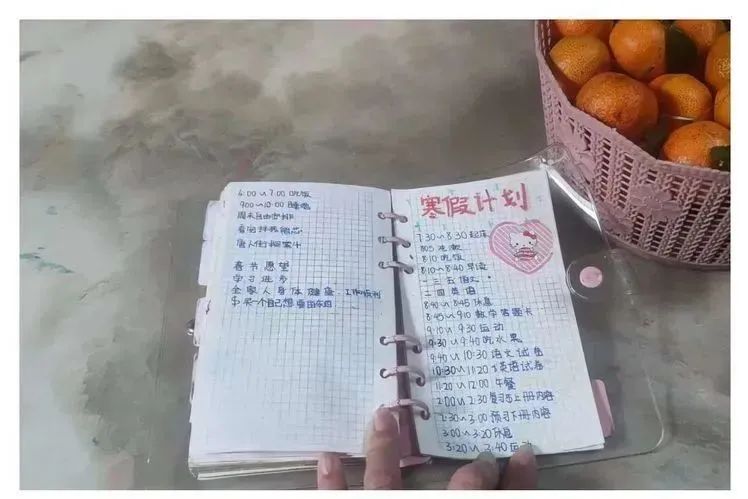 6:00~7:00 吃饭
9:00~10:00 睡觉
周末自由安排
春节愿望
学习进步
全家人身体健康
买一个自己想要的东西
寒假计划
7:30~8:30 起床
8:05 洗漱
8:10 吃饭
8:10~8:40 早读
一三五语文
二四英语
8:40~8:45 休息
8:45~9:10 数学答题卡
9:10~9:30 运动
9:30~9:40 吃水果
9:40~10:30 语文试卷
10:30~11:20 英语试卷
11:20~12:00 午餐
2:00~2:30 复习上册内容
2:30~3:00 预习下册内容
3:00~3:20 休息
3:20~3:40 运动